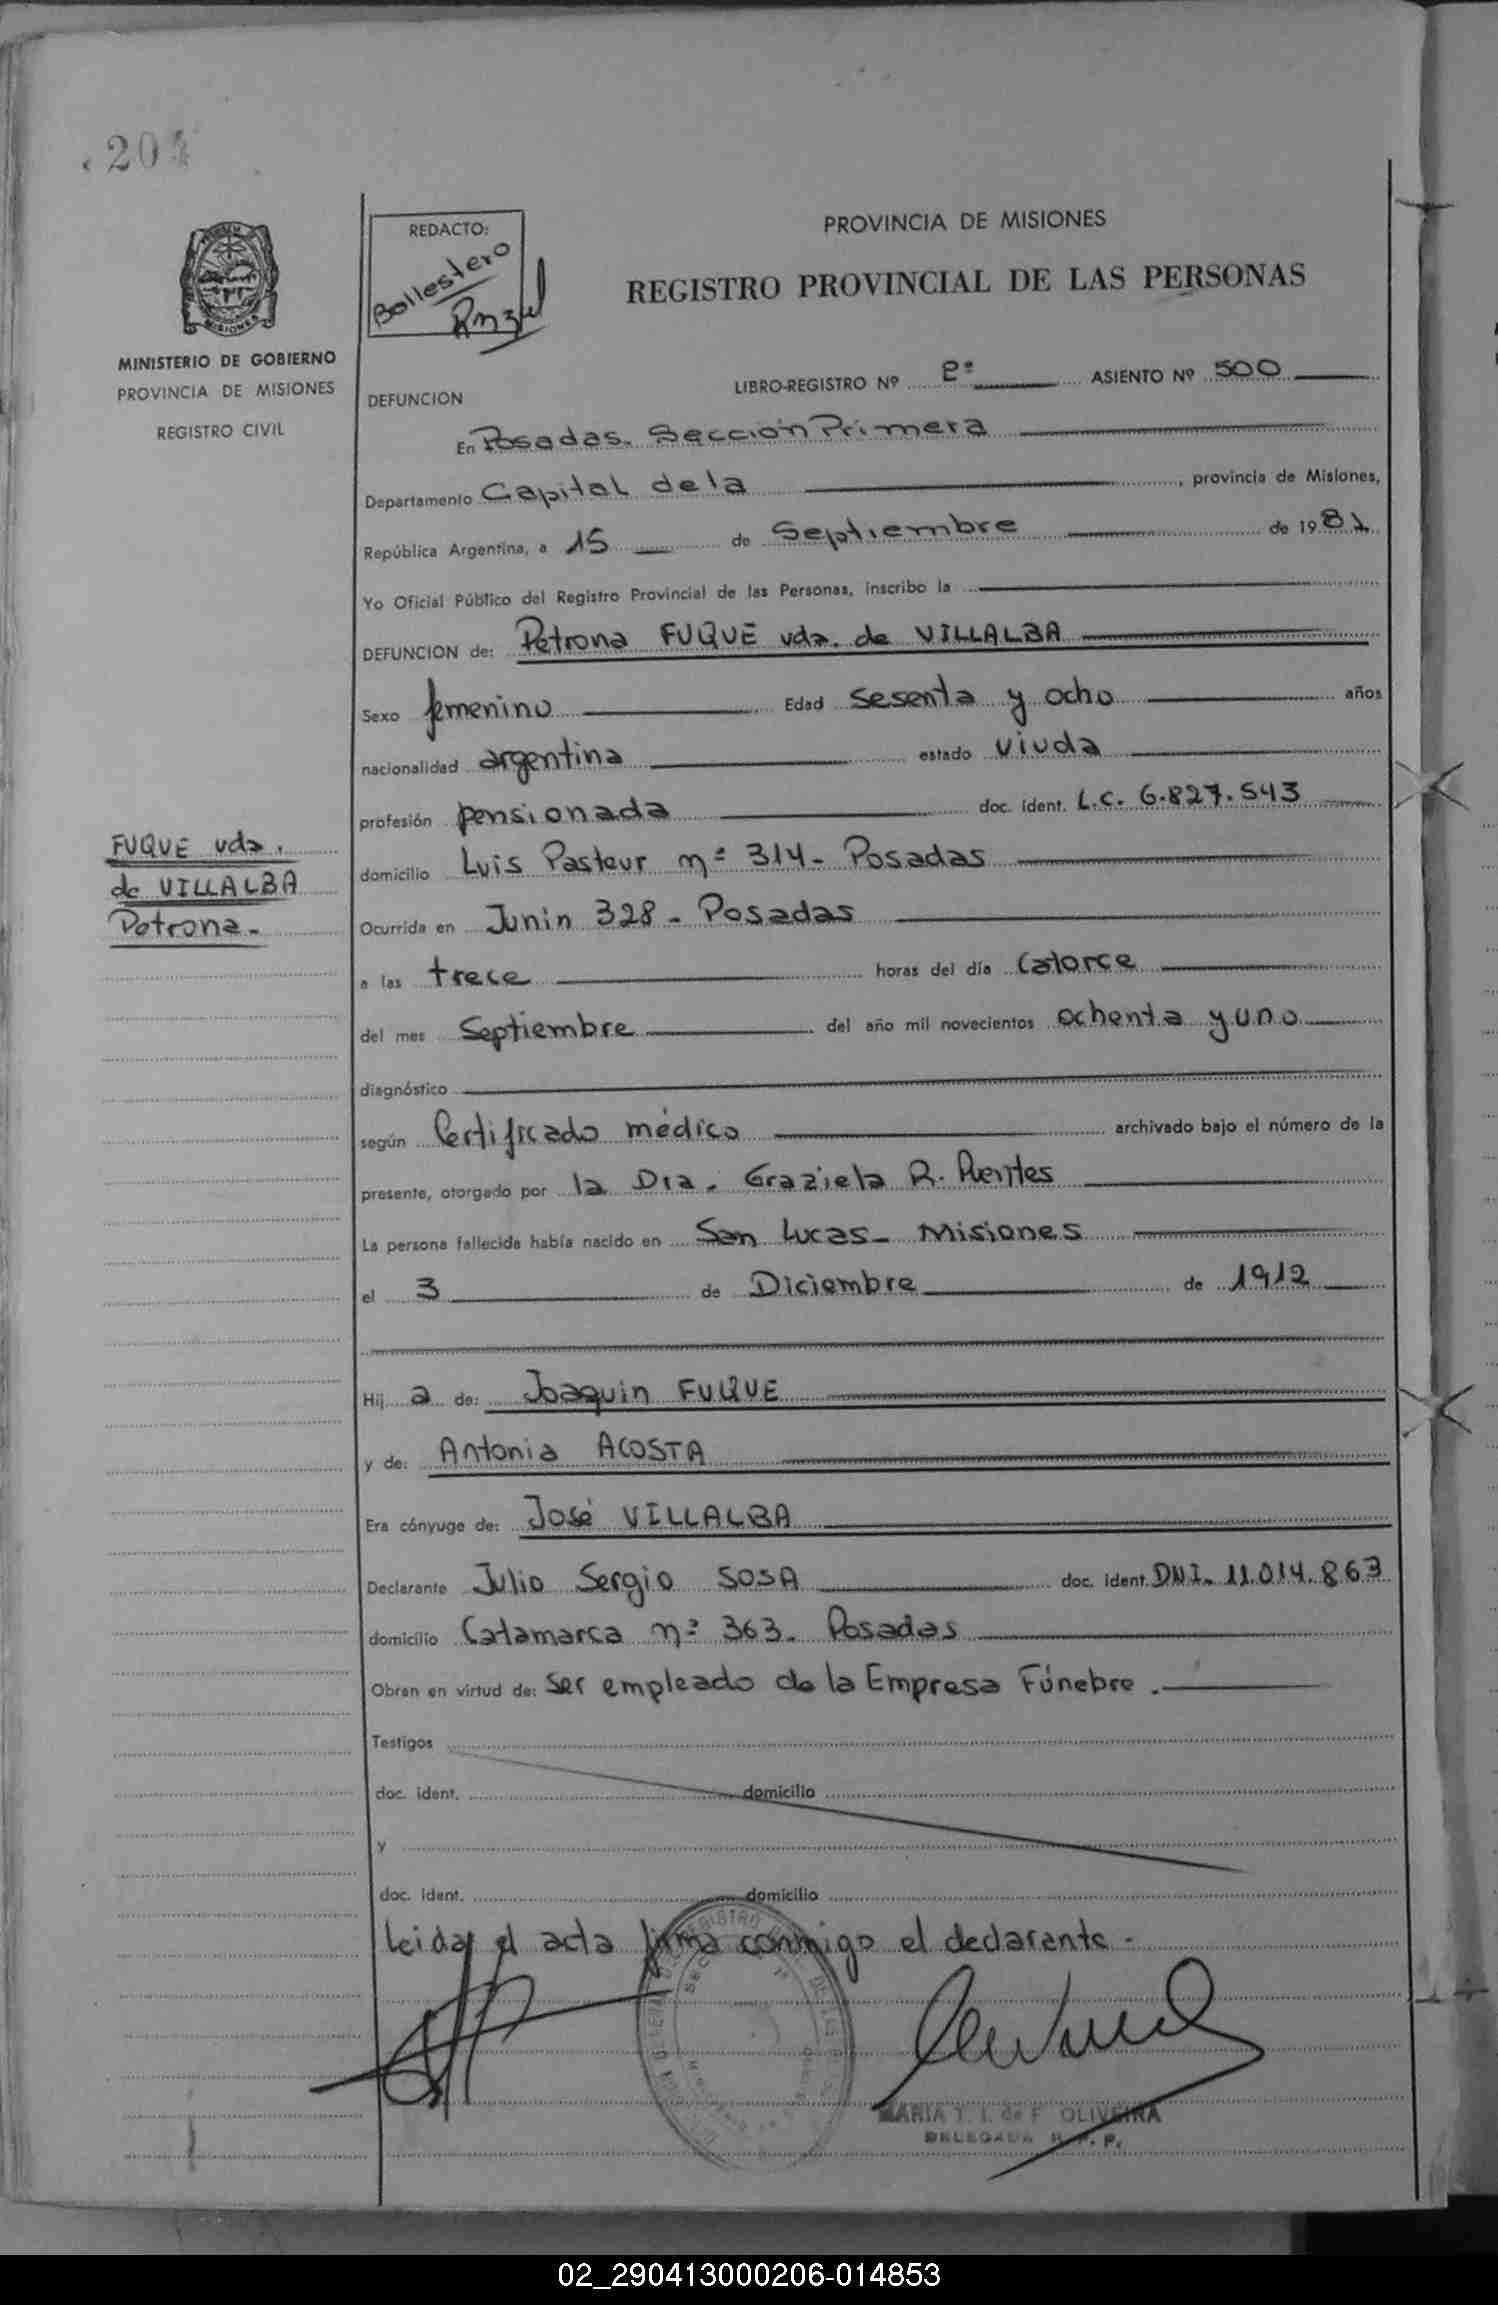 204
REDACTO:
Ballestero
PROVINCIA DE MISIONES
REGISTRO PROVINCIAL DE LAS PERSONAS
MISIONES
MINISTERIO DE GOBIERNO
PROVINCIA DE MISIONES
REGISTRO CIVIL
DEFUNCION
LIBRO-REGISTRO Nº 2º ASIENTO Nº 500
En Posadas. Sección Primera
Departamento Capital de la , provincia de Misiones,
República Argentina, a 15 de Septiembre de 1981
Yo Oficial Público del Registro Provincial de las Personas, inscribo la
DEFUNCION de: Petrona FUQUE vda. de VILLALBA
Sexo femenino Edad sesenta y ocho años
nacionalidad argentina estado viuda
profesión pensionada doc. ident. L.C. 6.827.543
FUQUE vda.
de VILLALBA
Petrona.-
domicilio Luis Pasteur nº 314- Posadas
Ocurrida en Junin 328 - Posadas
a las trece horas del día Catorce
del mes Septiembre del año mil novecientos ochenta y uno
diagnóstico
según Certificado médico archivado bajo el número de la
presente, otorgado por la Dra. Graziela R. Puentes
La persona fallecida había nacido en San Lucas- Misiones
el 3 de Diciembre de 1912
Hij a de: Joaquin FUQUE
y de: Antonia ACOSTA
Era cónyuge de: José VILLALBA
Declarante Julio Sergio SOSA doc. ident. DNI. 11.014.863
domicilio Catamarca nº 363. Posadas
Obran en virtud de: ser empleado de la Empresa Fúnebre.
Testigos
doc. ident. domicilio
y
doc. ident. domicilio
Leida el acta firma conmigo el declarante.
MARIA T. I. de F. OLIVEIRA
DELEGADA R. P. P.
02_290413000206-014853